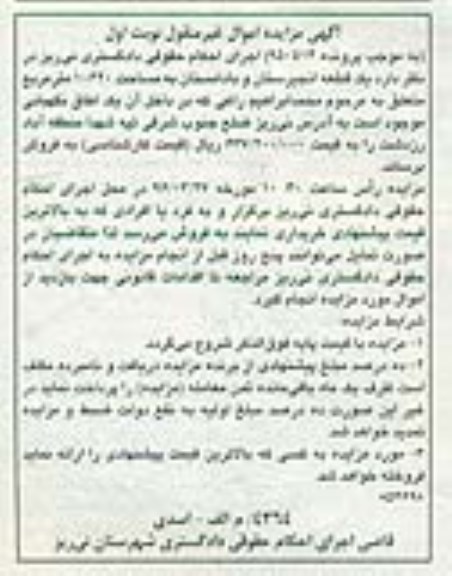 آگهی مزایده اموال غیرمنقول نوبت اول
(به موجب پرونده اجرای احکام حقوقی دادگستری نی‌ریز در
نظر دارد یک قطعه انجیرستان و بادامستان به مساحت مترمربع
متعلق به مرحوم محمدابراهیم که در داخل آن یک اطاق نگهبانی
موجود است به آدرس نی‌ریز ضلع جنوب شرقی تپه شهدا منطقه آباد
زردشت را به قیمت ریال (قیمت کارشناسی) به فروش
برساند.
مزایده رأس ساعت ۱۰:۳۰ مورخه در محل اجرای احکام
حقوقی دادگستری نی‌ریز برگزار و به فرد یا افرادی که به بالاترین
قیمت پیشنهادی خریداری نمایند به فروش می‌رسد لذا متقاضیان در
صورت تمایل می‌توانند پنج روز قبل از انجام مزایده به اجرای احکام
حقوقی دادگستری نی‌ریز مراجعه تا اقدامات قانونی جهت بازدید از
اموال مورد مزایده انجام گیرد.
شرایط مزایده:
۱- مزایده با قیمت پایه فوق‌الذکر شروع می‌گردد.
۲- ده درصد مبلغ پیشنهادی از برنده مزایده دریافت و نامبرده مکلف
است ظرف یک ماه باقی‌مانده ثمن معامله (مزایده) را پرداخت نماید در
غیر این صورت ده درصد مبلغ اولیه به نفع دولت ضبط و مزایده
تجدید خواهد شد.
۳- مورد مزایده به کسی که بالاترین قیمت پیشنهادی را ارائه نماید
فروخته خواهد شد.
۴۳۹۴/ م الف - اسدی
قاضی اجرای احکام حقوقی دادگستری شهرستان نی‌ریز